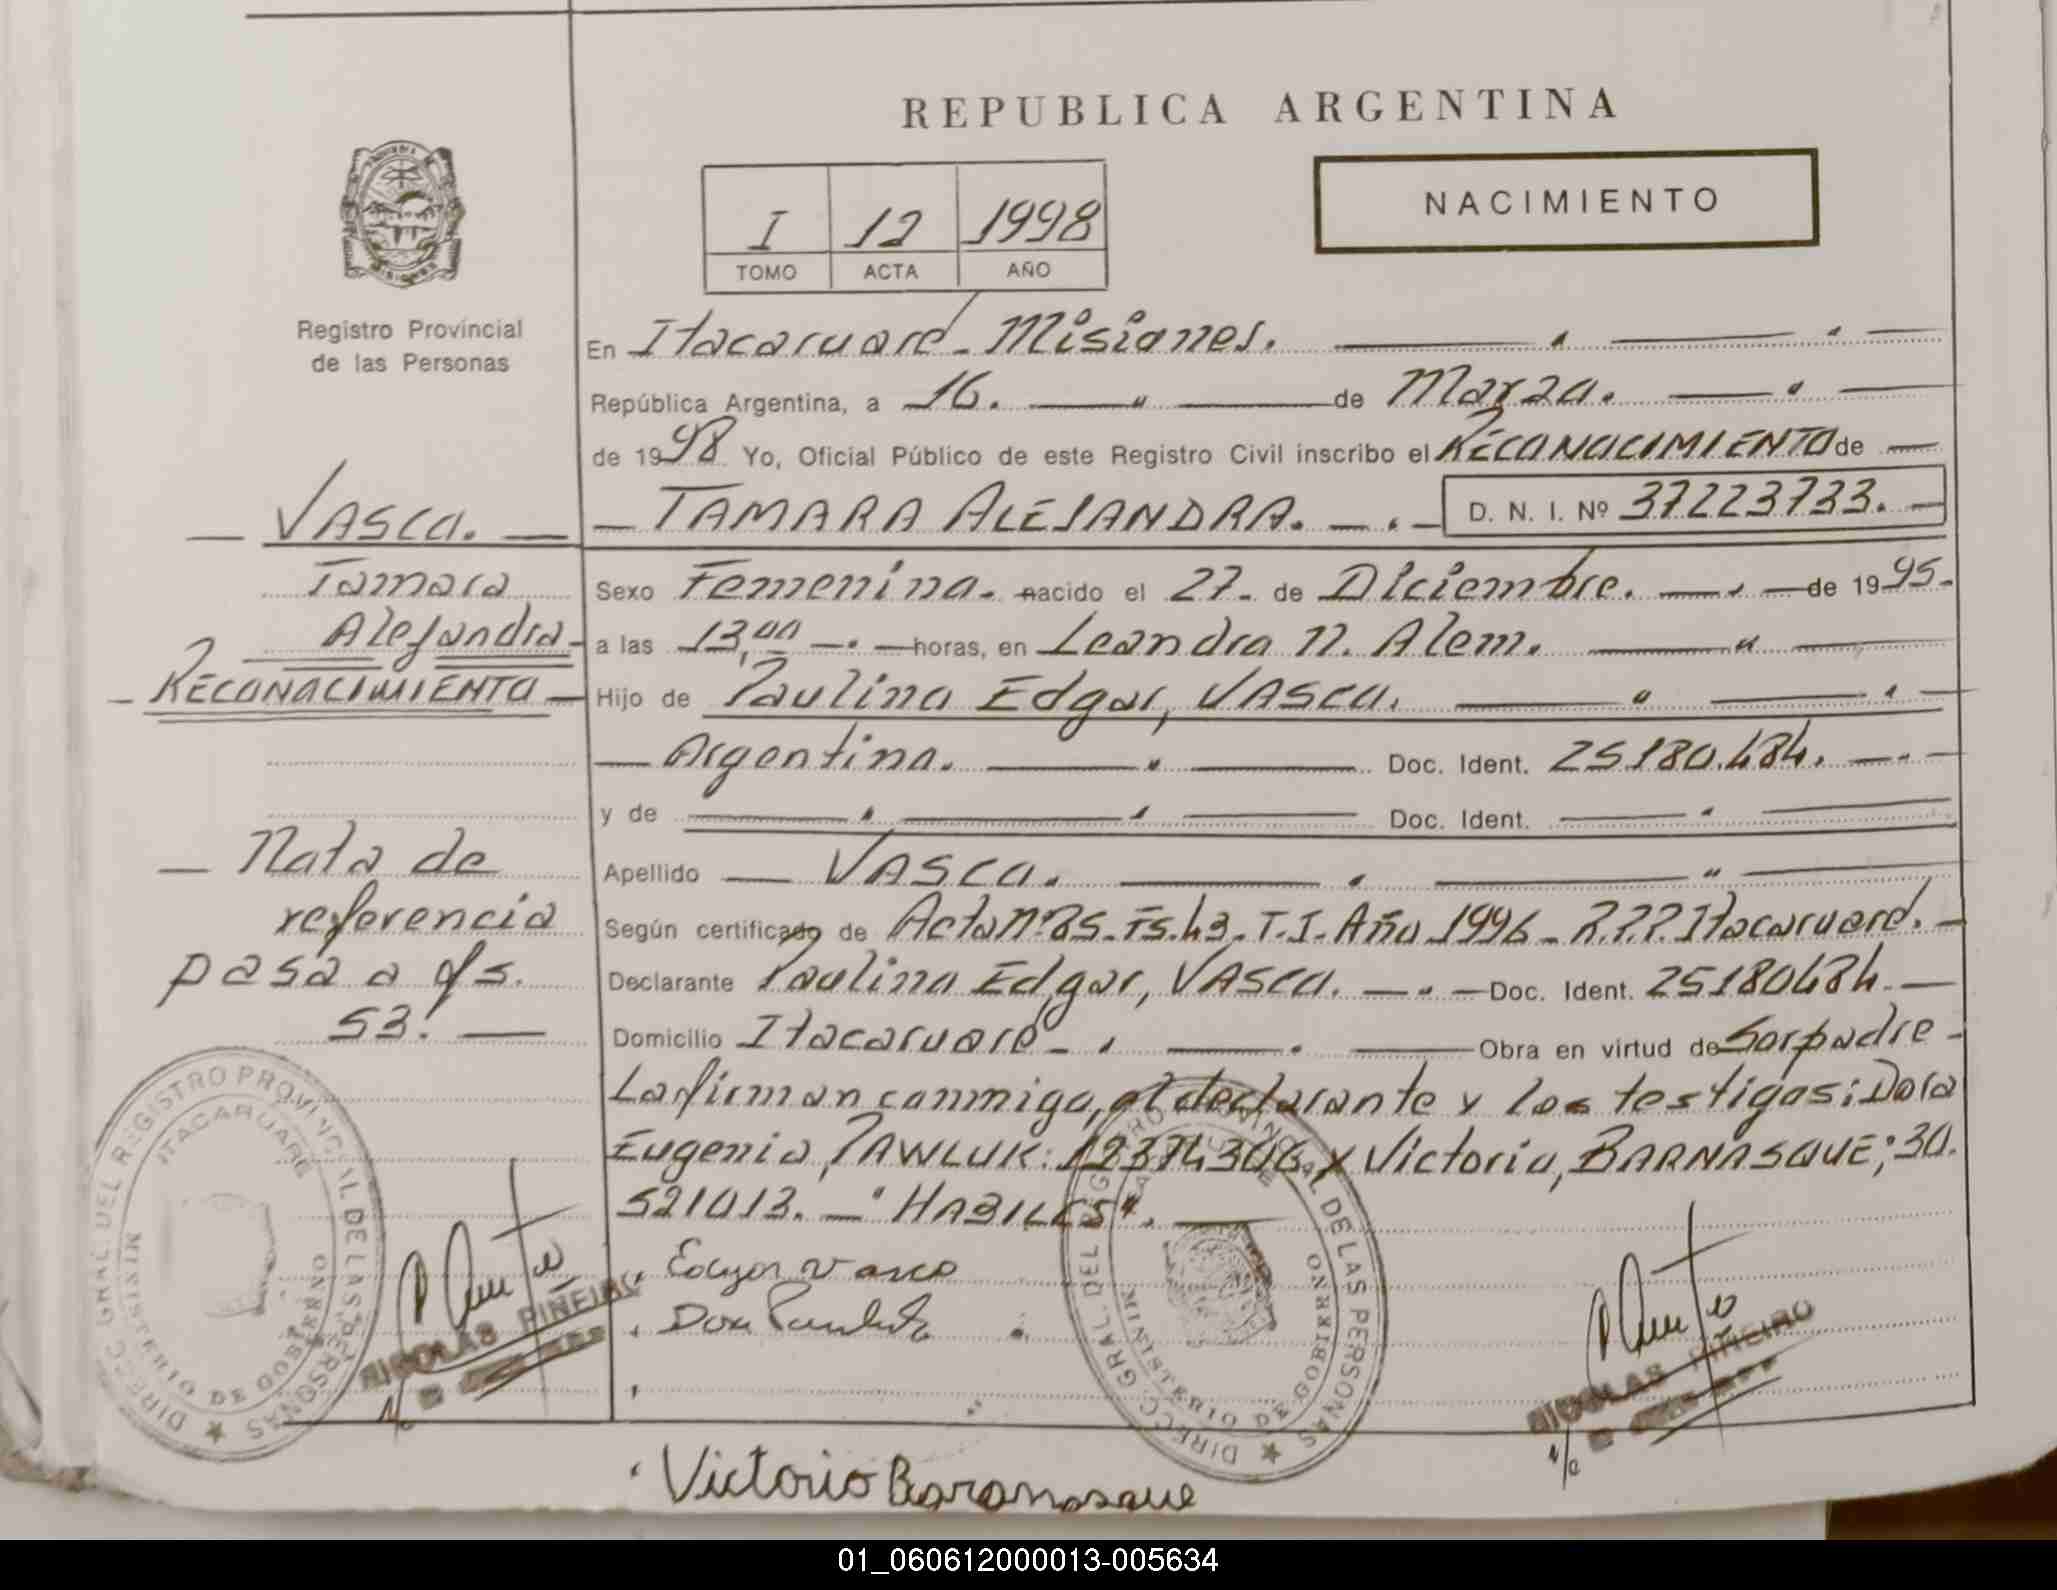 REPUBLICA ARGENTINA
NACIMIENTO
I 12 1998
TOMO ACTA AÑO
Registro Provincial
de las Personas
En Itacaruaré - Misiones.
República Argentina, a 16. de Marzo.
de 1998 Yo, Oficial Público de este Registro Civil inscribo el RECONOCIMIENTO de
TAMARA ALEJANDRA. D. N. I. Nº 37223733.
VASCO.
Tamara
Alejandra
RECONOCIMIENTO
Sexo Femenino. nacido el 27. de Diciembre. de 1995.
a las 13,00 horas, en Leandro N. Alem.
Hijo de Paulino Edgar, VASCO.
Argentino. Doc. Ident. 25.180.484.
y de Doc. Ident.
Apellido VASCO.
Según certificado de Acta Nº 85 - Fs. 43 - T. I - Año 1996 - R.P.P. Itacaruaré.
Declarante Paulino Edgar, VASCO. Doc. Ident. 25180484.
Domicilio Itacaruaré - Obra en virtud de Ser padre -
La firman conmigo, el declarante y los testigos: Dora
Eugenia, PAWLUK: 12374306 y Victorio, BARNASQUE; 30.
521013. - "HABILES".
Nota de
referencia
pasa a fs.
53.
Edgar Vasco
Dora
Victorio Baranasque
DIRECC. GRAL. DEL REGISTRO PROVINCIAL DE LAS PERSONAS
ITACARUARE
MINISTERIO DE GOBIERNO
NICOLAS PIÑEIRO
DIRECC. GRAL. DEL REGISTRO PROVINCIAL DE LAS PERSONAS
MINISTERIO DE GOBIERNO
NICOLAS PIÑEIRO
01_060612000013-005634